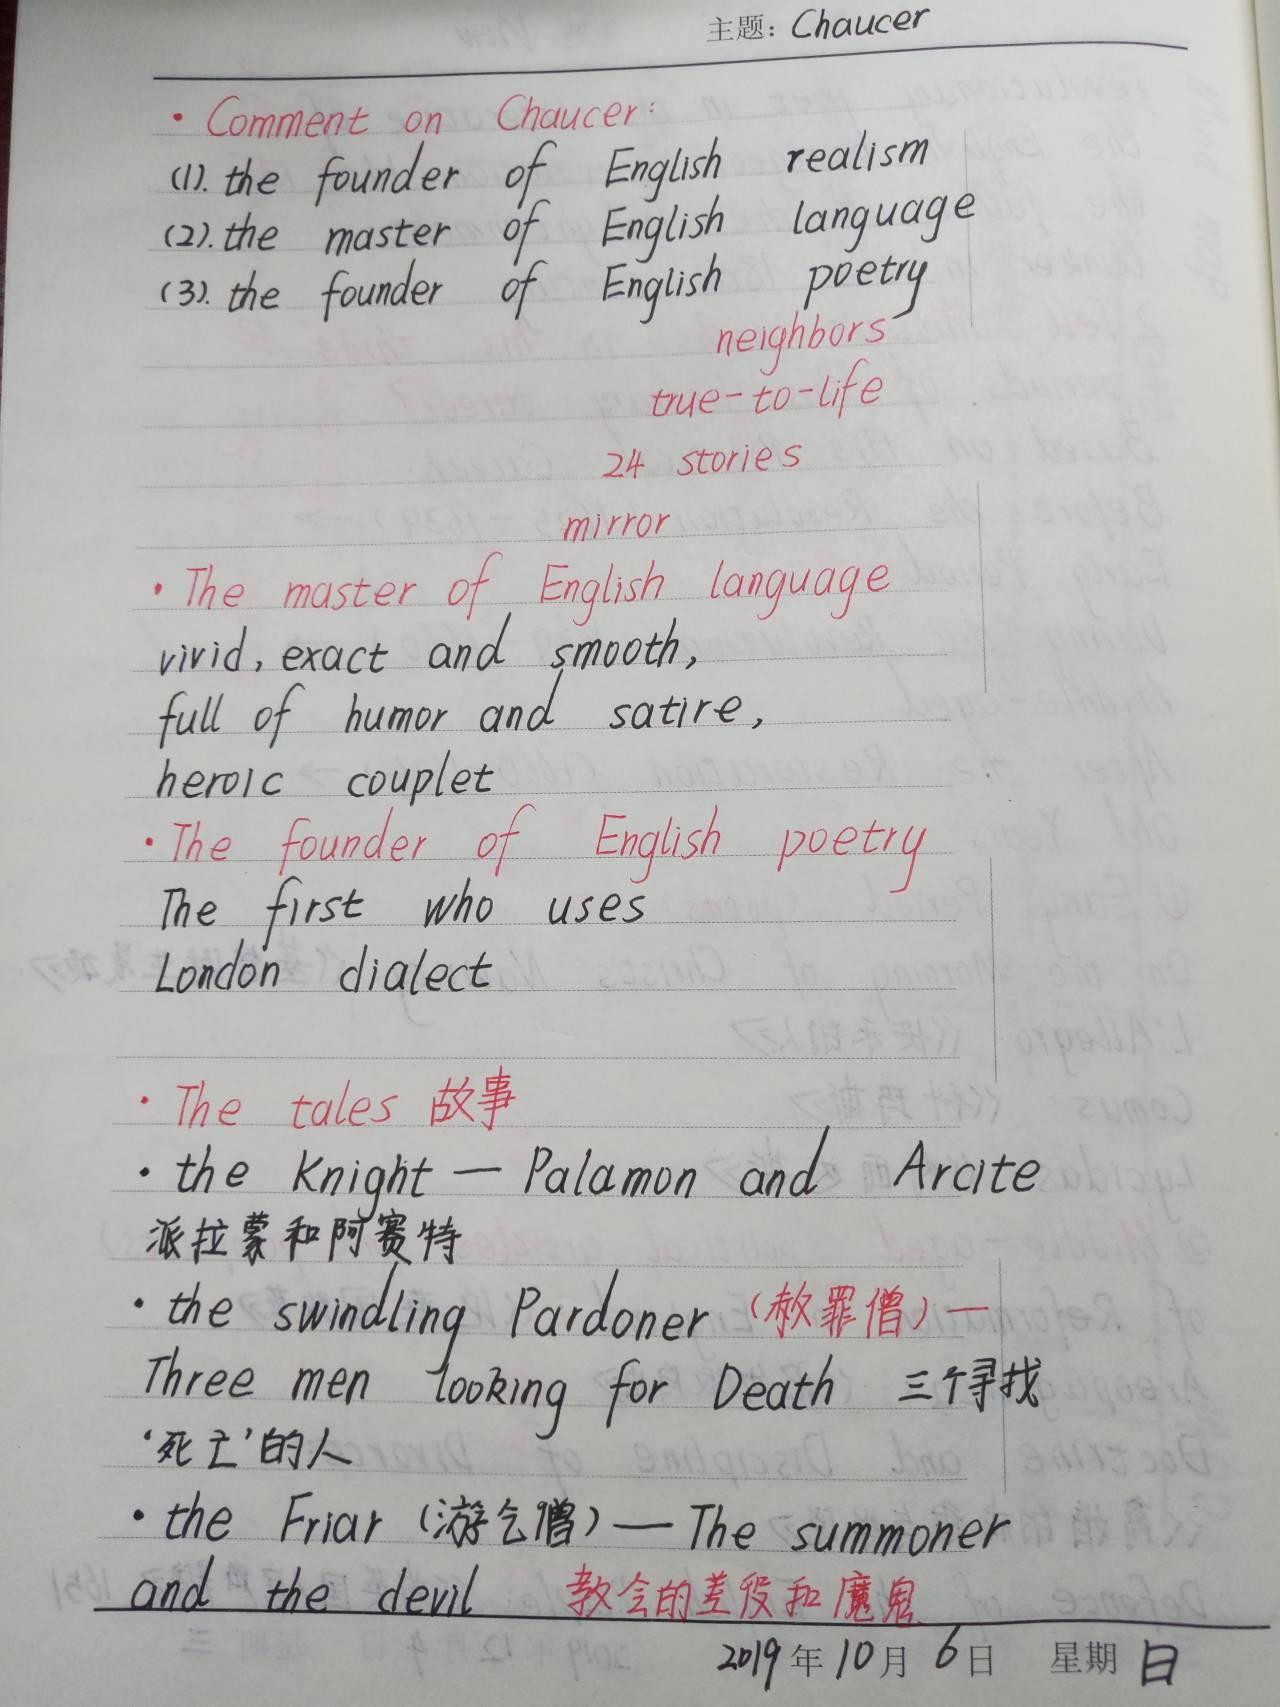 主题: Chaucer
· Comment on Chaucer:
(1). the founder of English realism
(2). the master of English language
(3). the founder of English poetry
neighbors
true-to-life
24 stories
mirror
· The master of English language
vivid, exact and smooth,
full of humor and satire,
heroic couplet
· The founder of English poetry
The first who uses
London dialect
· The tales 故事
· the Knight — Palamon and Arcite
派拉蒙和阿赛特
· the swindling Pardoner (赦罪僧) —
Three men looking for Death 三个寻找
‘死亡’的人
· the Friar (游乞僧) — The summoner
and the devil 教会的差役和魔鬼
2019年10月6日 星期日